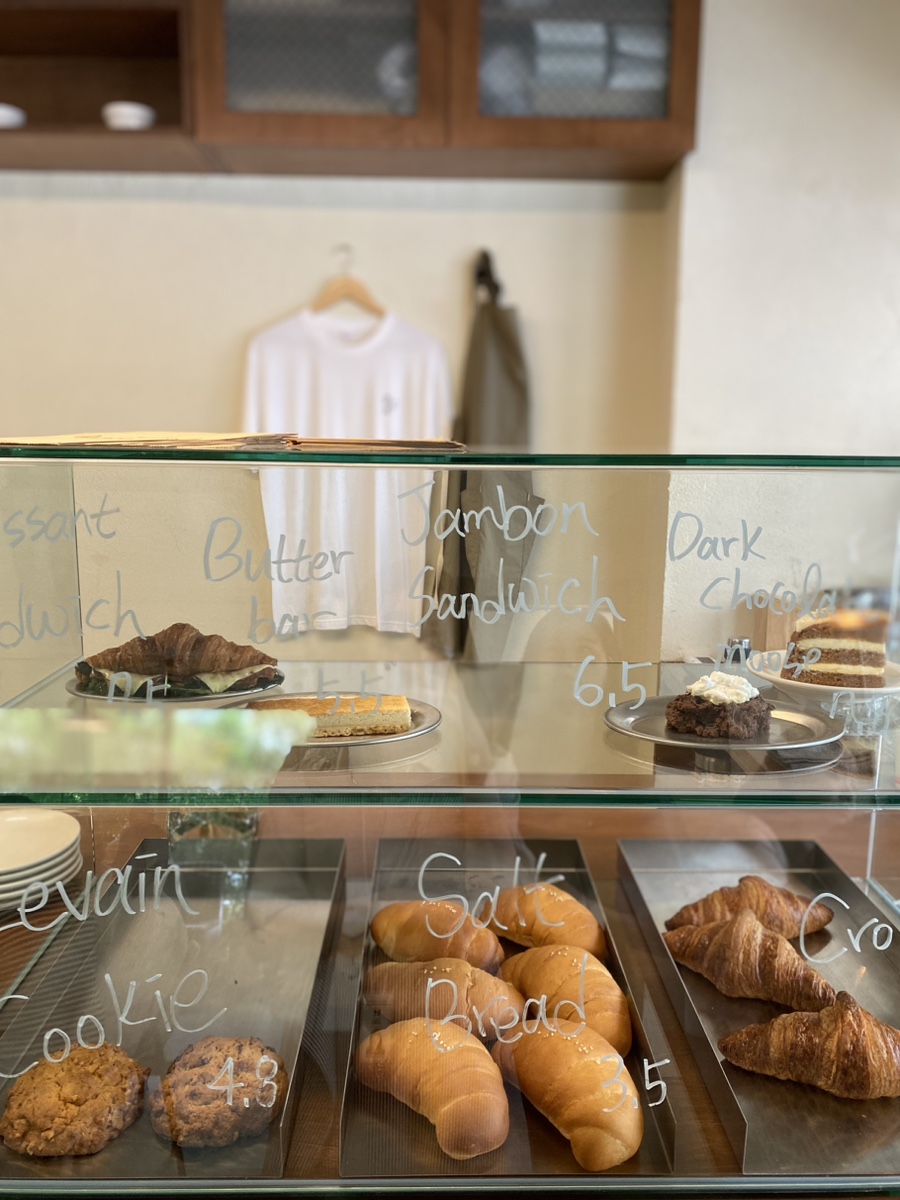 ssant
dwich
Butter
bar
5.5
Jambon
Sandwich
6.5
Dark
Chocola
Levain
Cookie
4.8
Salt
Bread
3.5
Cro